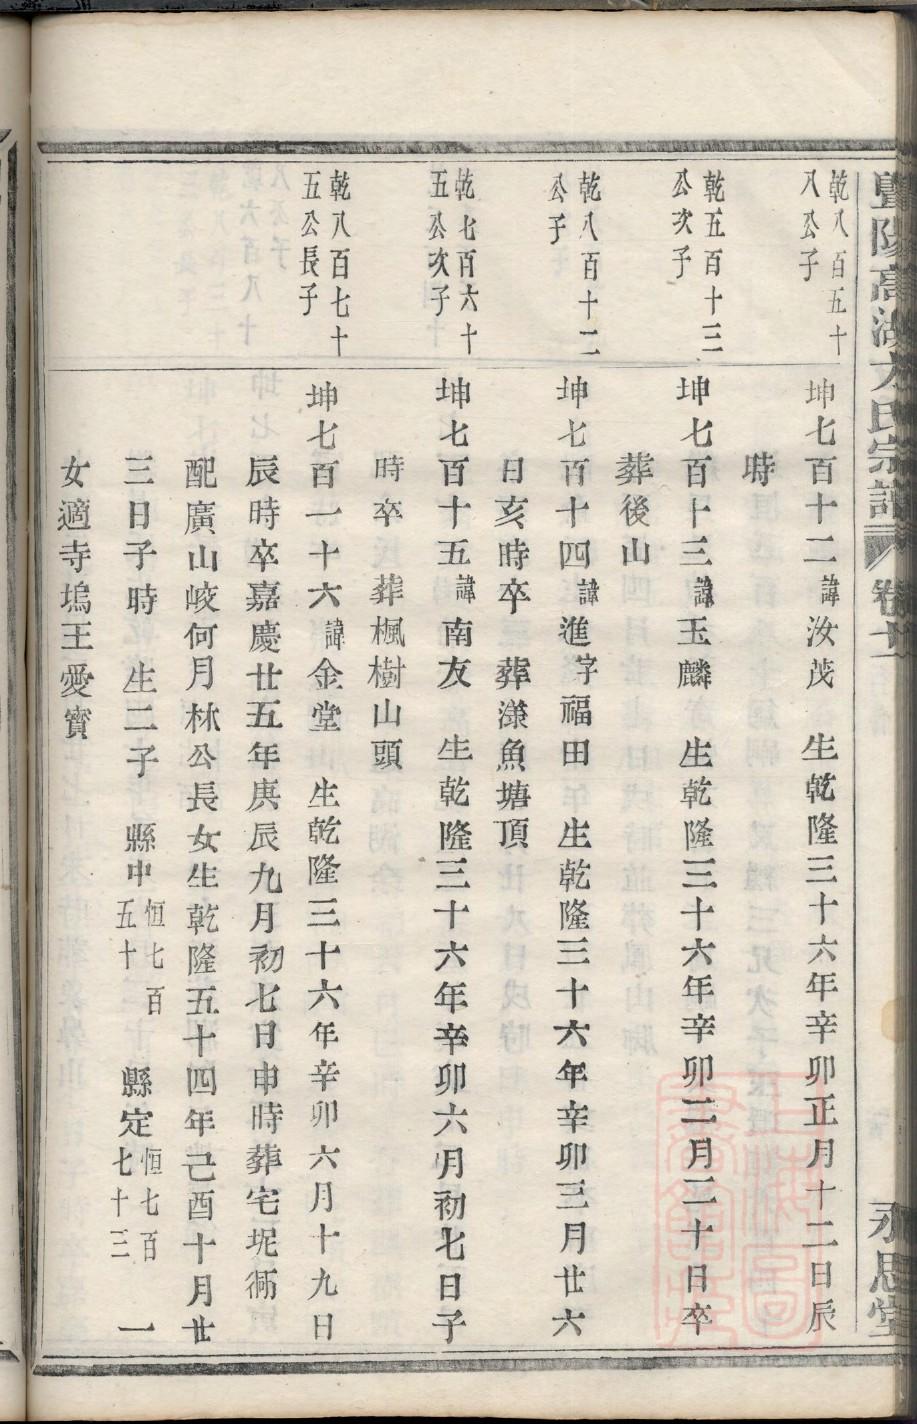 暨陽高湖方氏宗譜 卷十 永思堂
乾八百五十
八公子
坤七百十二諱汝茂 生乾隆三十六年辛卯正月十二日辰
時
乾五百十三
公次子
坤七百十三諱玉麟 生乾隆三十六年辛卯二月二十日卒
葬後山
乾八百十二
公子
坤七百十四諱進字福田 生乾隆三十六年辛卯三月廿六
日亥時卒 葬漾魚塘頂
乾七百六十
五公次子
坤七百十五諱南友 生乾隆三十六年辛卯六月初七日子
時卒 葬楓樹山頭
乾八百七十
五公長子
坤七百一十六諱金堂 生乾隆三十六年辛卯六月十九日
辰時卒嘉慶廿五年庚辰九月初七日申時葬宅坭衕
配廣山峧何月林公長女生乾隆五十四年己酉十月廿
三日子時 生二子 縣中恒七百五十 縣定恒七百七十三 一
女適寺塢王愛寳